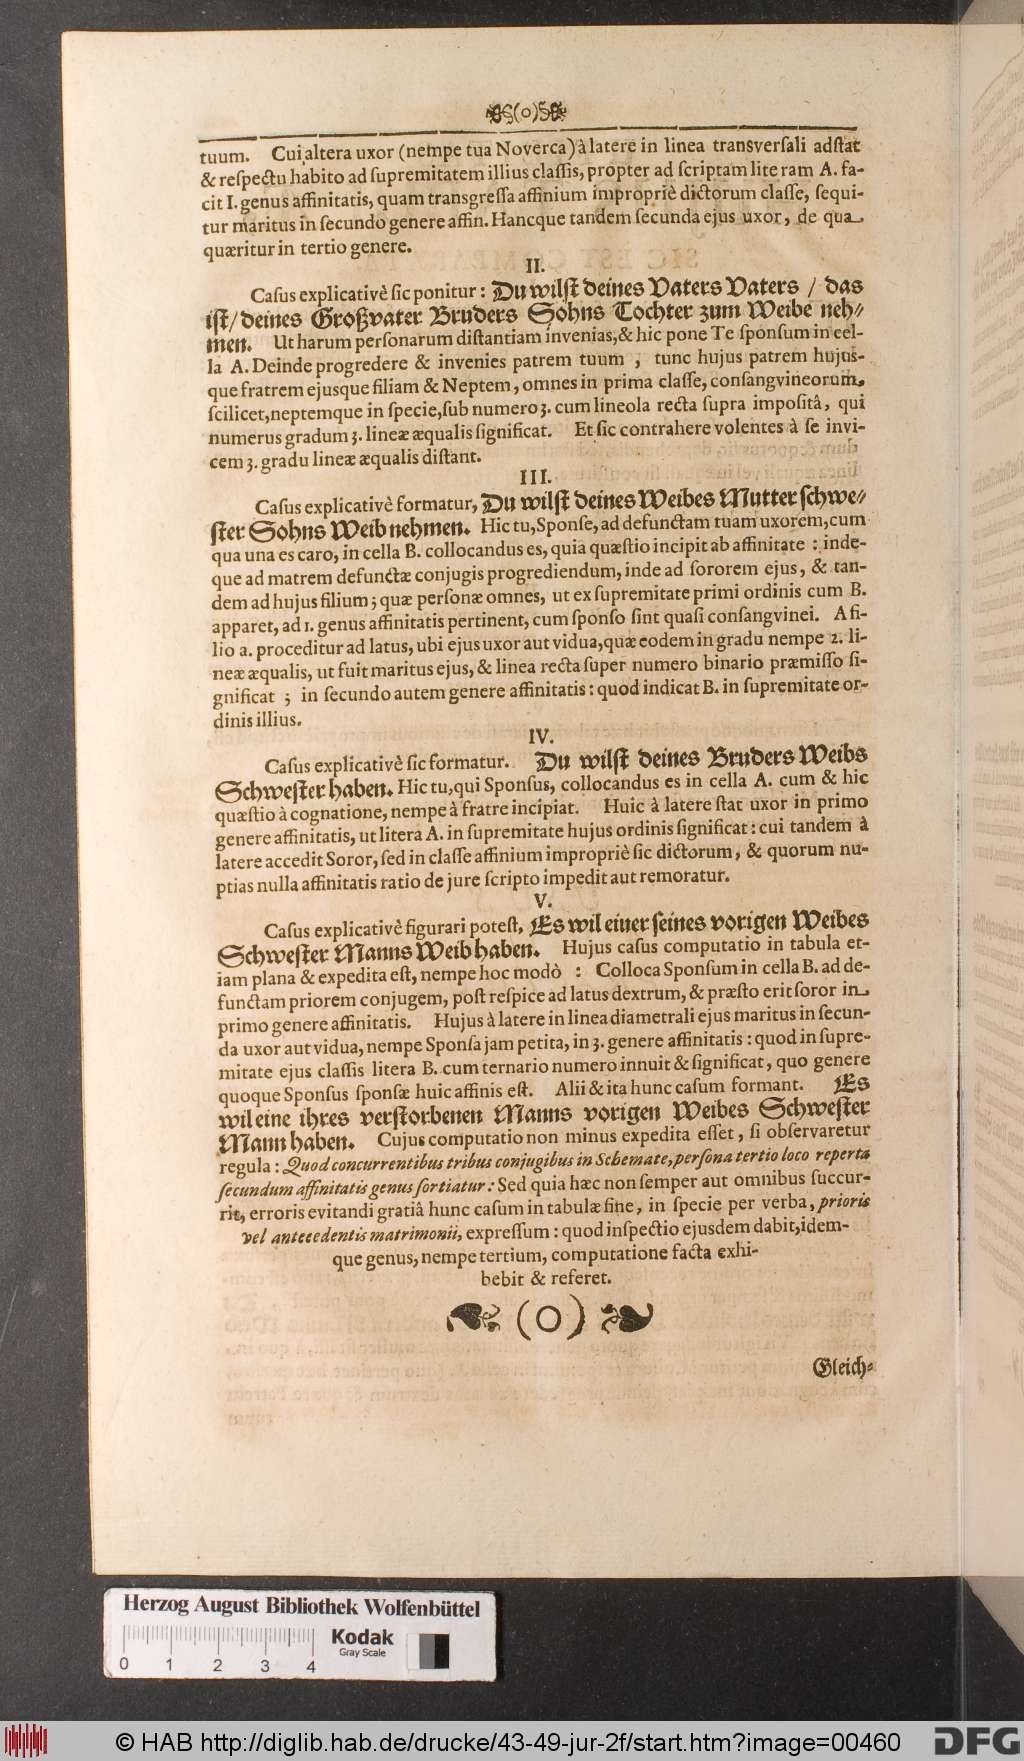 (o)
tuum. Cui altera uxor (nempe tua Noverca) à latere in linea transversali adstat
& respectu habito ad supremitatem illius classis, propter ad scriptam literam A. fa-
cit I. genus affinitatis, quam transgressa affinium impropriè dictorum classe, sequi-
tur maritus in secundo genere affin. Hancque tandem secunda ejus uxor, de qua
quæritur in tertio genere.
II.
Casus explicativè sic ponitur: Du wilst deines Vaters Vaters / das
ist/ deines Großvater Bruders Sohns Tochter zum Weibe neh-
men. Ut harum personarum distantiam invenias, & hic pone Te sponsum in cel-
la A. Deinde progredere & invenies patrem tuum , tunc hujus patrem hujus-
que fratrem ejusque filiam & Neptem, omnes in prima classe, consangvineorum,
scilicet, neptemque in specie, sub numero 3. cum lineola recta supra impositâ, qui
numerus gradum 3. lineæ æqualis significat. Et sic contrahere volentes à se invi-
cem 3. gradu lineæ æqualis distant.
III.
Casus explicativè formatur, Du wilst deines Weibes Mutter schwe-
ster Sohns Weib nehmen. Hic tu, Sponse, ad defunctam tuam uxorem, cum
qua una es caro, in cella B. collocandus es, quia quæstio incipit ab affinitate : inde-
que ad matrem defunctæ conjugis progrediendum, inde ad sororem ejus, & tan-
dem ad hujus filium; quæ personæ omnes, ut ex supremitate primi ordinis cum B.
apparet, ad 1. genus affinitatis pertinent, cum sponso sint quasi consangvinei. A fi-
lio a. proceditur ad latus, ubi ejus uxor aut vidua, quæ eodem in gradu nempe 2. li-
neæ æqualis, ut fuit maritus ejus, & linea recta super numero binario præmisso si-
gnificat ; in secundo autem genere affinitatis : quod indicat B. in supremitate or-
dinis illius.
IV.
Casus explicativè sic formatur. Du wilst deines Bruders Weibs
Schwester haben. Hic tu, qui Sponsus, collocandus es in cella A. cum & hic
quæstio à cognatione, nempe à fratre incipiat. Huic à latere stat uxor in primo
genere affinitatis, ut litera A. in supremitate hujus ordinis significat : cui tandem à
latere accedit Soror, sed in classe affinium impropriè sic dictorum, & quorum nu-
ptias nulla affinitatis ratio de jure scripto impedit aut remoratur.
V.
Casus explicativè figurari potest, Es wil einer seines vorigen Weibes
Schwester Manns Weib haben. Hujus casus computatio in tabula et-
iam plana & expedita est, nempe hoc modò : Colloca Sponsum in cella B. ad de-
functam priorem conjugem, post respice ad latus dextrum, & præsto erit soror in
primo genere affinitatis. Hujus à latere in linea diametrali ejus maritus in secun-
da uxor aut vidua, nempe Sponsa jam petita, in 3. genere affinitatis : quod in supre-
mitate ejus classis litera B. cum ternario numero innuit & significat, quo genere
quoque Sponsus sponsæ huic affinis est. Alii & ita hunc casum formant. Es
wil eine ihres verstorbenen Manns vorigen Weibes Schwester
Mann haben. Cujus computatio non minus expedita esset, si observaretur
regula : Quod concurrentibus tribus conjugibus in Schemate, persona tertio loco reperta
secundum affinitatis genus sortiatur : Sed quia hæc non semper aut omnibus succur-
rit, erroris evitandi gratiâ hunc casum in tabulæ fine, in specie per verba, prioris
vel antecedentis matrimonii, expressum : quod inspectio ejusdem dabit, idem-
que genus, nempe tertium, computatione facta exhi-
bebit & referet.
(O)
Gleich-
Herzog August Bibliothek Wolfenbüttel
0 1 2 3 4
Kodak
Gray Scale
© HAB http://diglib.hab.de/drucke/43-49-jur-2f/start.htm?image=00460
DFG